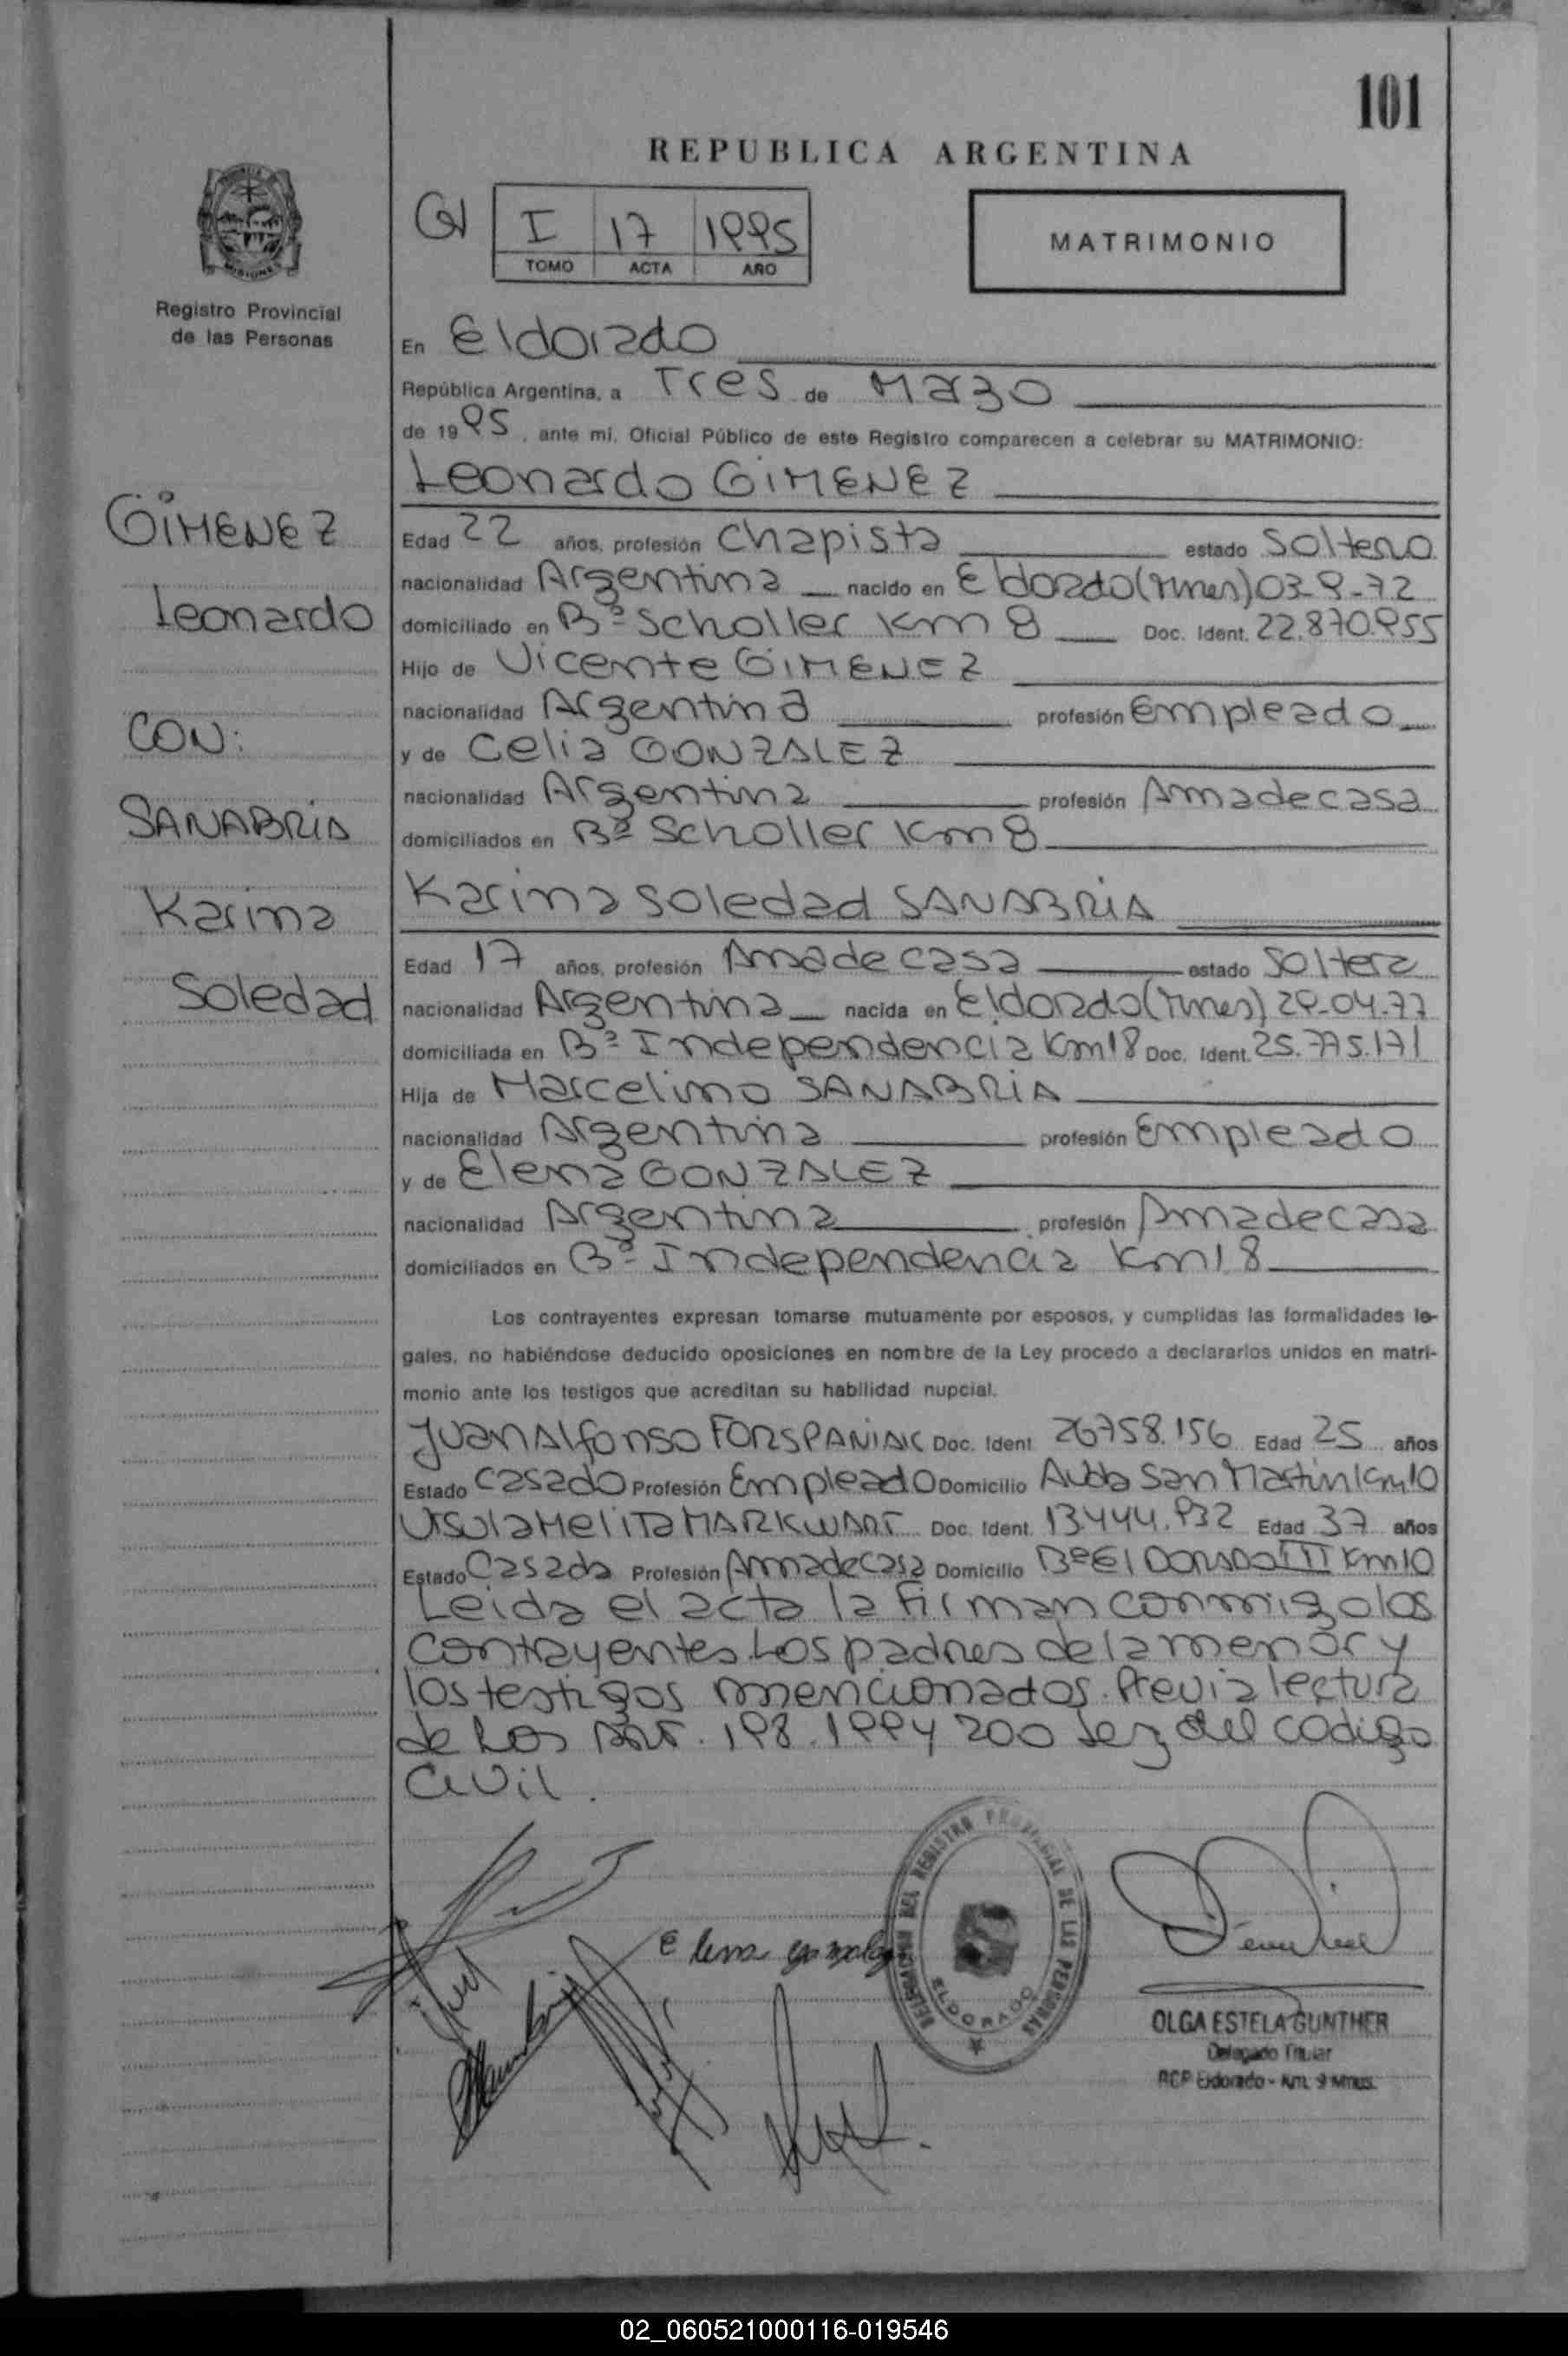 101
REPUBLICA ARGENTINA
I 17 1995
TOMO ACTA AÑO
MATRIMONIO
MISIONES
Registro Provincial
de las Personas
En Eldorado
República Argentina, a Tres de Marzo
de 1995, ante mi, Oficial Público de este Registro comparecen a celebrar su MATRIMONIO:
Leonardo GIMENEZ
GIMENEZ
Leonardo
CON:
SANABRIA
Karina
Soledad
Edad 22 años, profesión Chapista estado Soltero
nacionalidad Argentina nacido en Eldorado (Mnes) 03-9-72
domiciliado en Bº Scholler Km 8 Doc. Ident. 22.870.955
Hijo de Vicente GIMENEZ
nacionalidad Argentina profesión Empleado
y de Celia GONZALEZ
nacionalidad Argentina profesión Amadecasa
domiciliados en Bº Scholler Km 8
Karina Soledad SANABRIA
Edad 17 años, profesión Amadecasa estado Soltera
nacionalidad Argentina nacida en Eldorado (Mnes) 29-04-77
domiciliada en Bº Independencia Km 18 Doc. Ident. 25.775.171
Hija de Marcelino SANABRIA
nacionalidad Argentina profesión Empleado
y de Elena GONZALEZ
nacionalidad Argentina profesión Amadecasa
domiciliados en Bº Independencia Km 18
Los contrayentes expresan tomarse mutuamente por esposos, y cumplidas las formalidades le-
gales, no habiéndose deducido oposiciones en nombre de la Ley procedo a declararlos unidos en matri-
monio ante los testigos que acreditan su habilidad nupcial.
Juan Alfonso FORSPANIAK Doc. Ident. 26758.156 Edad 25 años
Estado Casado Profesión Empleado Domicilio Avda San Martin Km 10
Ursula Melita MARKWART Doc. Ident. 13.444.932 Edad 37 años
Estado Casada Profesión Amadecasa Domicilio Bº El DORADO III Km 10
Leida el acta la firman conmigo los
contrayentes. Los padres de la menor y
los testigos mencionados. Previa lectura
de Los ART. 198. 199 y 200 del codigo
civil.
Elena gonzalez
DELEGACION DEL REGISTRO PROVINCIAL DE LAS PERSONAS
ELDORADO
OLGA ESTELA GUNTHER
Delegado Titular
RCP Eldorado - Km. 9 Mnes.
02_060521000116-019546